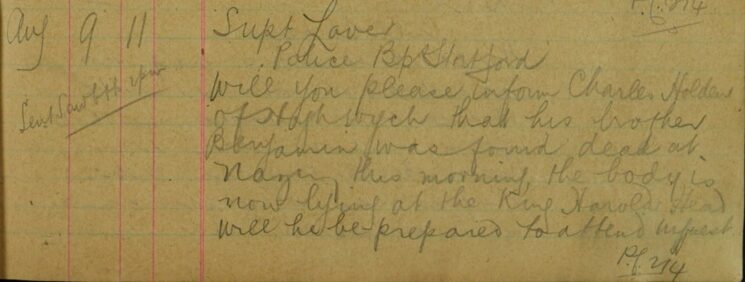 P.C. 214
Aug 9 11 Supt Laver
Police Bp Stortford
Will you please inform Charles Holdens
of that his brother
Benjamin was found dead at
Nazing this morning the body is
now lying at the King Harolds Head
will he be prepared to attend inquest
P.C. 214